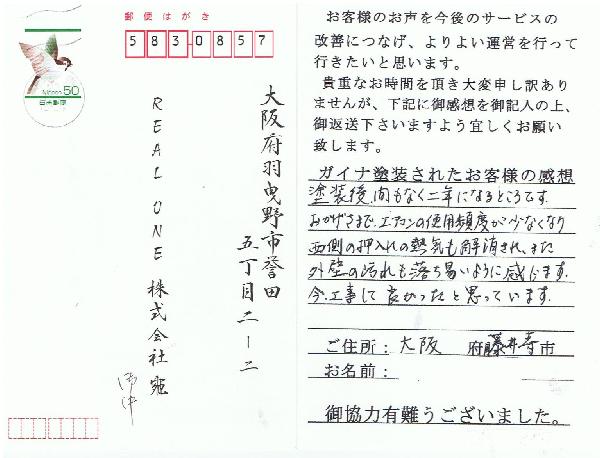 郵便はがき
583 0857
Nippon 50
日本郵便
大阪府羽曳野市誉田
五丁目二ー二
REAL ONE 株式会社宛
御中
お客様のお声を今後のサービスの
改善につなげ、よりよい運営を行って
行きたいと思います。
貴重なお時間を頂き大変申し訳あり
ませんが、下記に御感想を御記入の上、
御返送下さいますよう宜しくお願い
致します。
ガイナ塗装されたお客様の感想
塗装後、間もなく二年になるところです。
おかげさまで、エアコンの使用頻度が少なくなり
西側の押入れの熱気も解消され、また
外壁の汚れも落ち易いように感じます。
今、工事して良かったと思っています。
ご住所：大阪 府藤井寺市
お名前：
御協力有難うございました。